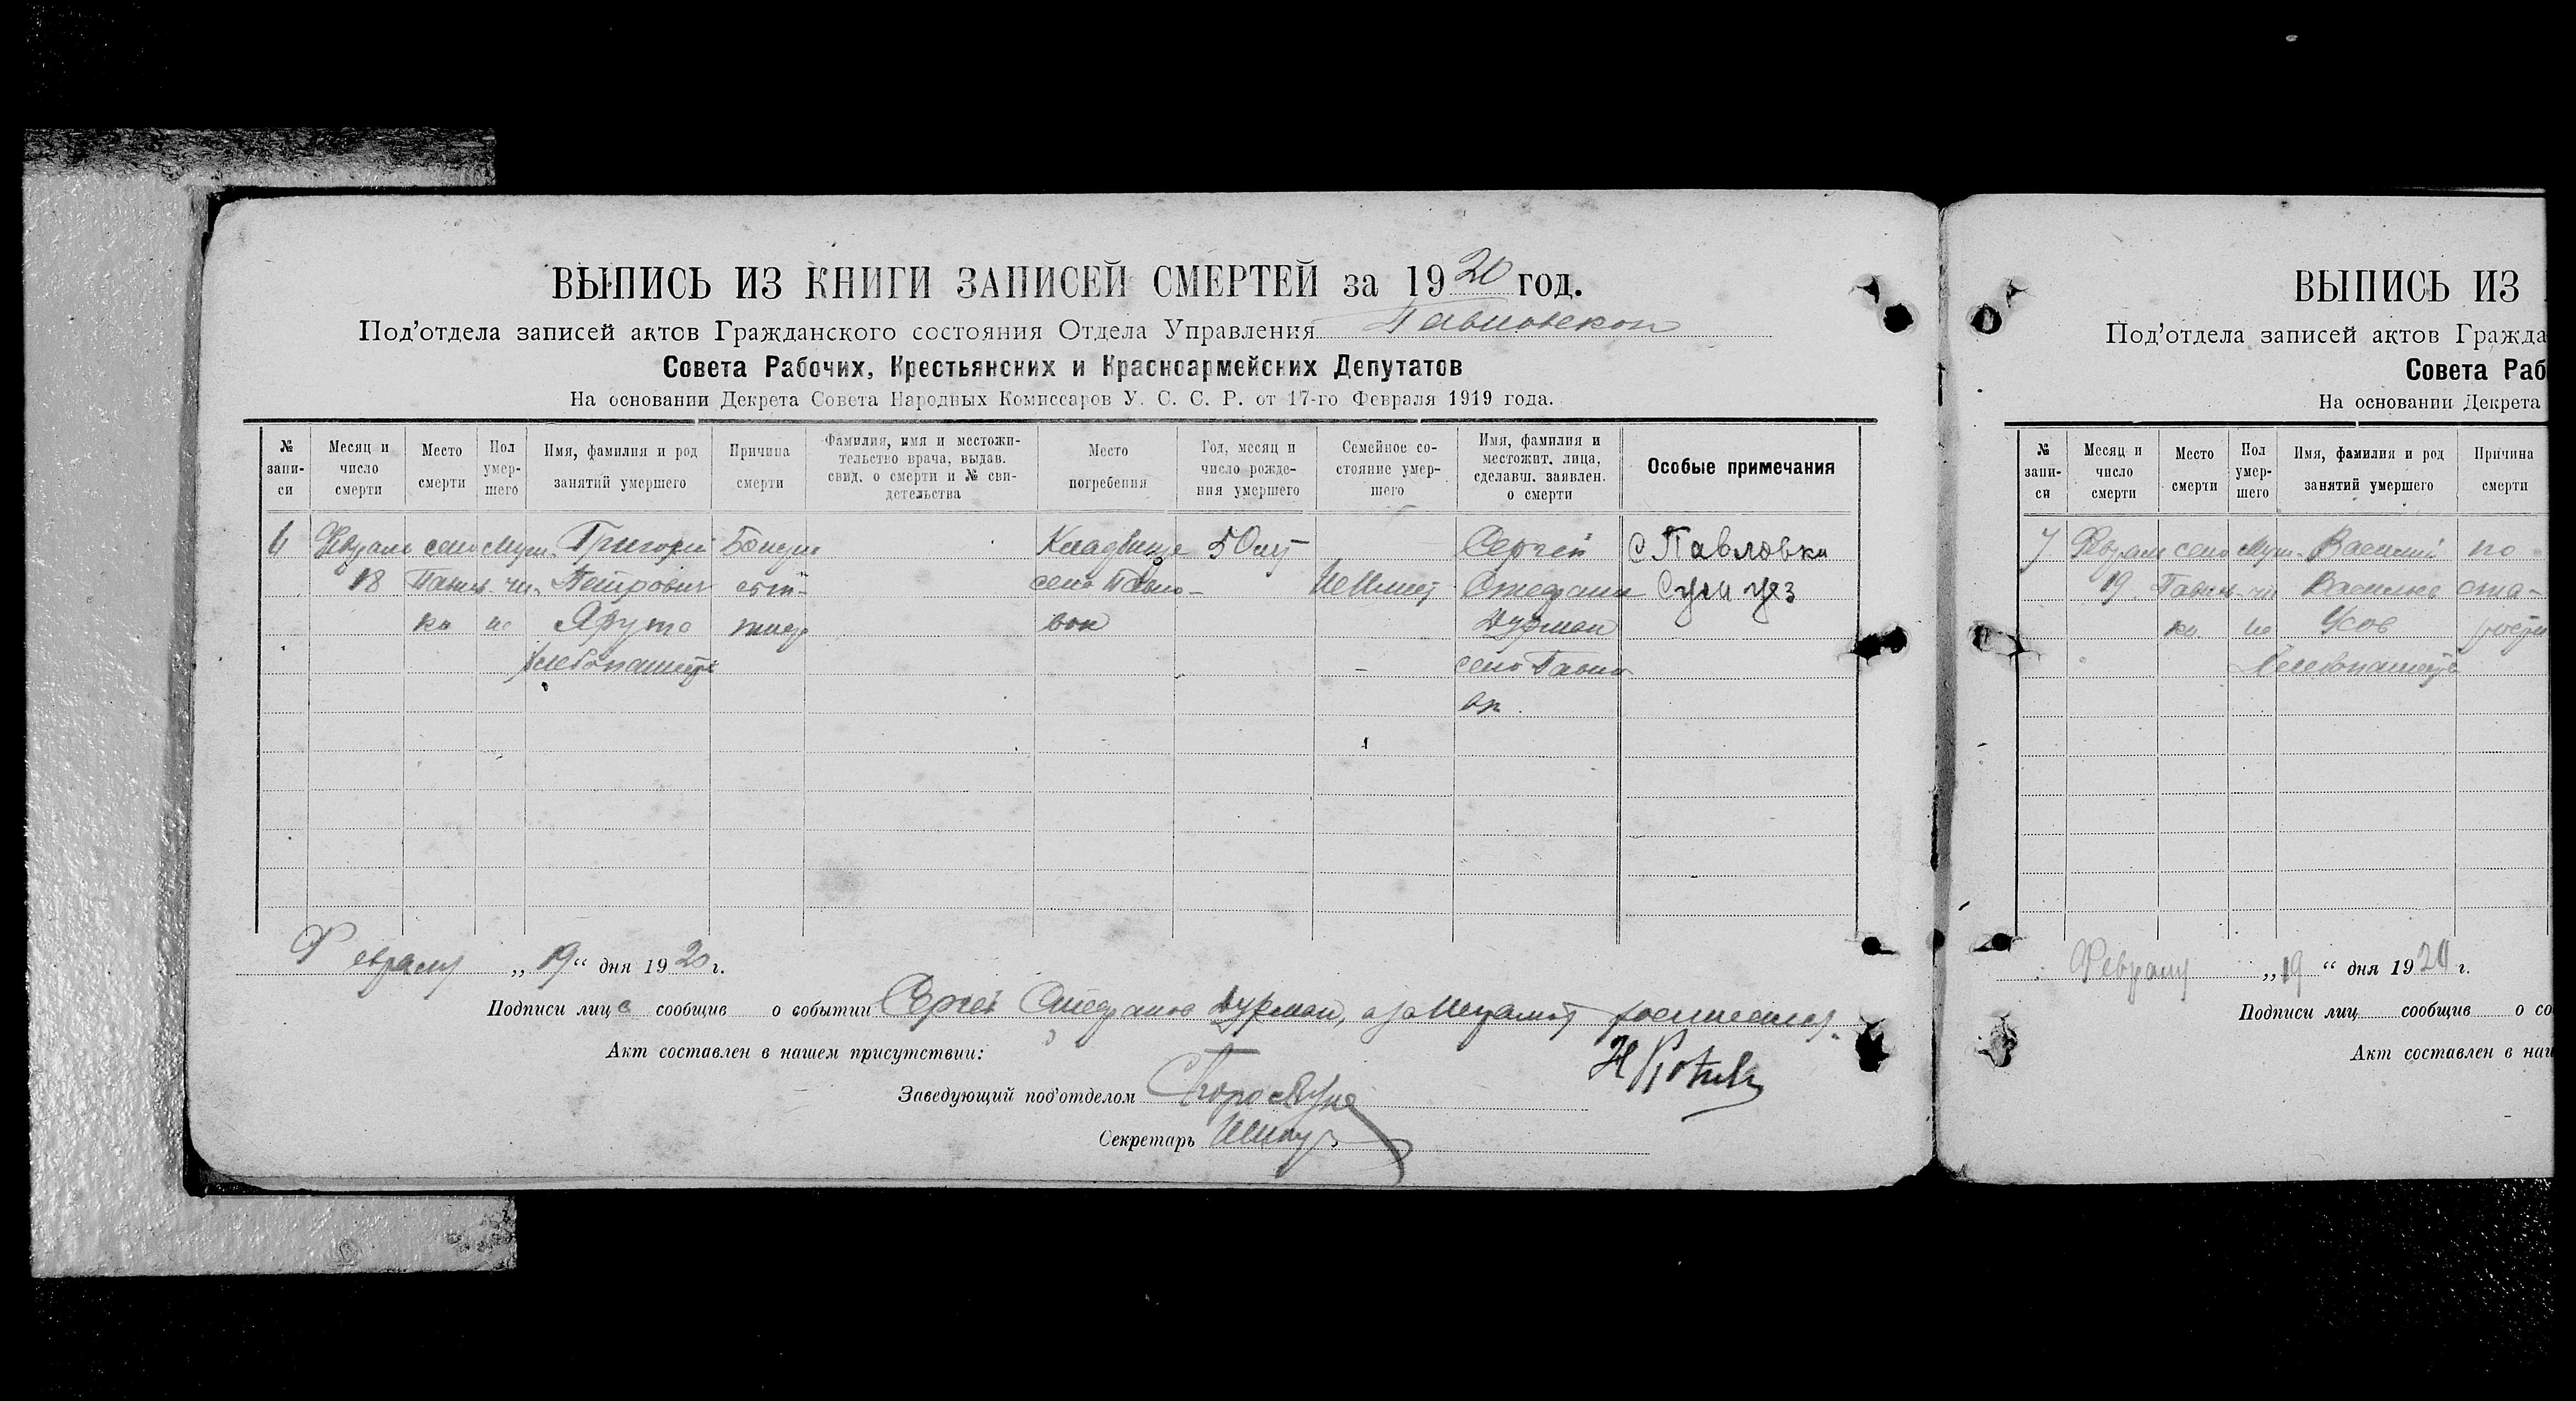 ВЫПИСЬ ИЗ КНИГИ ЗАПИСЕЙ СМЕРТЕЙ за 1920 год.
Под'отдела записей актов Гражданского состояния Отдела Управления Павловской
Совета Рабочих, Крестьянских и Красноармейских Депутатов
На основании Декрета Совета Народных Комиссаров У. С. С. Р. от 17-го Февраля 1919 года.
№ запи-си
Месяц и число смерти
Место смерти
Пол умер-шего
Имя, фамилия и род занятий умершего
Причина смерти
Фамилия, имя и местожи-тельство врача, выдав. свид. о смерти и № сви-детельства
Место погребения
Год, месяц и число рожде-ния умершего
Семейное со-стояние умер-шего
Имя, фамилия и местожит. лица, сделавш. заявлен. о смерти
Особые примечания
6 Февраля село Муж. Григорий Кладбище 50 лет Сергей С Павловка
18 Павлов- чи- Петрович село Павло- Стефанов Сум уез
ка на Ярута вок Дурман
хлебопашец село Павло
вк.
Февраля „19“ дня 1920 г.
Подписи лица сообщив о событии Сергей Стефанов Дурман, а за
Акт составлен в нашем присутствии:
Заведующий под'отделом
Секретарь
ВЫПИСЬ ИЗ
Под'отдела записей актов Гражда
Совета Раб
На основании Декрета
№ запи-си
Месяц и число смерти
Место смерти
Пол умер-шего
Имя, фамилия и род занятий умершего
Причина смерти
7 Февраля село Муж. Василий по
19 Павлов- чи Васильев ста-
ка на Усов рости
Хлебопашец
Февраля „19“ дня 1920 г.
Подписи лиц сообщив о со
Акт составлен в наш